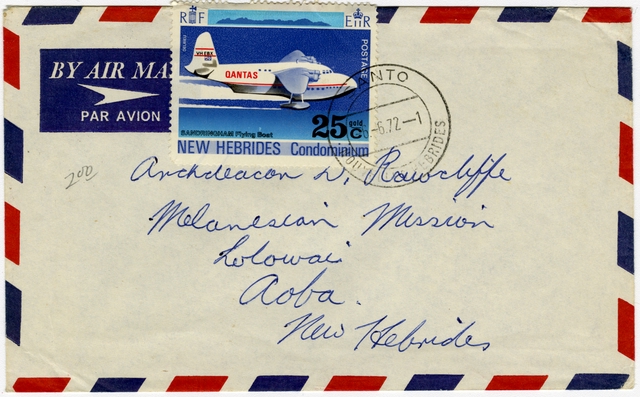 BY AIR MA
PAR AVION
RF
EIIR
POSTAGE
VH-EBX
QANTAS
SANDRINGHAM Flying Boat
25 gold c
NEW HEBRIDES Condominium
ANTO
6.72-1
HEBRIDES
200
Archdeacon D. Rawcliffe
Melanesian Mission
Lolowai
Aoba.
New Hebrides